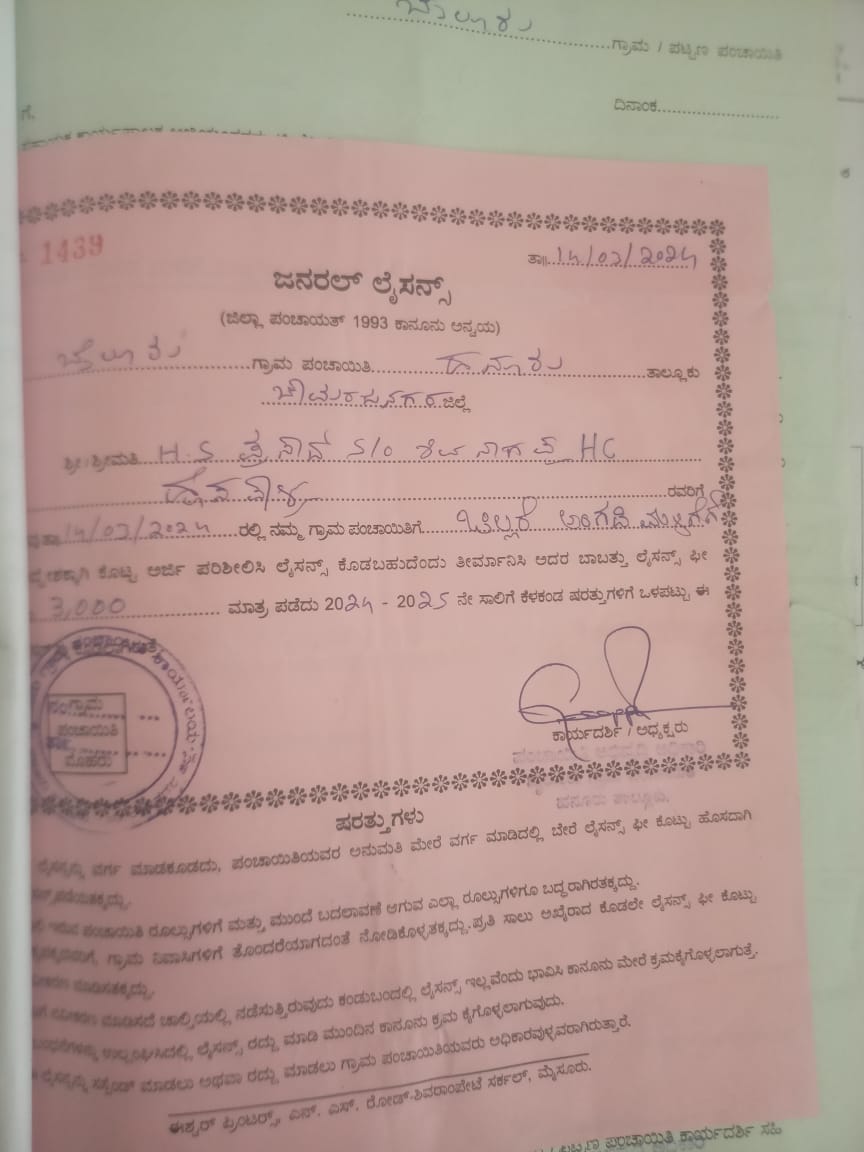 ಗ್ರಾಮ / ಪಟ್ಟಣ ಪಂಚಾಯಿತಿ
ದಿನಾಂಕ
ಗೆ,
1439
ತಾ॥ 14/02/2024
ಜನರಲ್ ಲೈಸನ್ಸ್
(ಜಿಲ್ಲಾ ಪಂಚಾಯತ್ 1993 ಕಾನೂನು ಅನ್ವಯ)
ಗ್ರಾಮ ಪಂಚಾಯಿತಿ ಹನೂರು ತಾಲ್ಲೂಕು
ಚಾಮರಾಜನಗರ ಜಿಲ್ಲೆ
ಶ್ರೀ/ಶ್ರೀಮತಿ H.S ಪ್ರಸಾದ್ S/o HC
ರವರಿಗೆ
14/02/2024 ರಲ್ಲಿ ನಮ್ಮ ಗ್ರಾಮ ಪಂಚಾಯಿತಿಗೆ ಚಿಲ್ಲರೆ ಅಂಗಡಿ ಮಳಿಗೆಗೆ
ಕೊಟ್ಟ ಅರ್ಜಿ ಪರಿಶೀಲಿಸಿ ಲೈಸನ್ಸ್ ಕೊಡಬಹುದೆಂದು ತೀರ್ಮಾನಿಸಿ ಅದರ ಬಾಬತ್ತು ಲೈಸನ್ಸ್ ಫೀ
3,000 ಮಾತ್ರ ಪಡೆದು 2024 - 2025 ನೇ ಸಾಲಿಗೆ ಕೆಳಕಂಡ ಷರತ್ತುಗಳಿಗೆ ಒಳಪಟ್ಟು ಈ
ಗ್ರಾಮ
ಪಂಚಾಯಿತಿ
ಮೊಹರು
ಕಾರ್ಯದರ್ಶಿ / ಅಧ್ಯಕ್ಷರು
ಹನೂರು ತಾಲ್ಲೂಕು.
ಷರತ್ತುಗಳು
ಲೈಸನ್ಸನ್ನು ವರ್ಗ ಮಾಡಕೂಡದು, ಪಂಚಾಯಿತಿಯವರ ಅನುಮತಿ ಮೇರೆ ವರ್ಗ ಮಾಡಿದಲ್ಲಿ ಬೇರೆ ಲೈಸನ್ಸ್ ಫೀ ಕೊಟ್ಟು ಹೊಸದಾಗಿ
ಪಂಚಾಯಿತಿ ರೂಲ್ಸುಗಳಿಗೆ ಮತ್ತು ಮುಂದೆ ಬದಲಾವಣೆ ಆಗುವ ಎಲ್ಲಾ ರೂಲ್ಸುಗಳಿಗೂ ಬದ್ಧರಾಗಿರತಕ್ಕದ್ದು.
ಗ್ರಾಮ ನಿವಾಸಿಗಳಿಗೆ ತೊಂದರೆಯಾಗದಂತೆ ನೋಡಿಕೊಳ್ಳತಕ್ಕದ್ದು. ಪ್ರತಿ ಸಾಲು ಅಖೈರಾದ ಕೊಡಲೇ ಲೈಸನ್ಸ್ ಫೀ ಕೊಟ್ಟು
ಮಾಡಿಸತಕ್ಕದ್ದು.
ಮಾಡಿಸದೆ ಚಾಲ್ತಿಯಲ್ಲಿ ನಡೆಸುತ್ತಿರುವುದು ಕಂಡುಬಂದಲ್ಲಿ ಲೈಸನ್ಸ್ ಇಲ್ಲವೆಂದು ಭಾವಿಸಿ ಕಾನೂನು ಮೇರೆ ಕ್ರಮಕೈಗೊಳ್ಳಲಾಗುತ್ತೆ.
ಉಲ್ಲಂಘಿಸಿದಲ್ಲಿ ಲೈಸನ್ಸ್ ರದ್ದು ಮಾಡಿ ಮುಂದಿನ ಕಾನೂನು ಕ್ರಮ ಕೈಗೊಳ್ಳಲಾಗುವುದು.
ಲೈಸನ್ಸನ್ನು ಸಸ್ಪೆಂಡ್ ಮಾಡಲು ಅಥವಾ ರದ್ದು ಮಾಡಲು ಗ್ರಾಮ ಪಂಚಾಯಿತಿಯವರು ಅಧಿಕಾರವುಳ್ಳವರಾಗಿರುತ್ತಾರೆ.
ಈಶ್ವರ್ ಪ್ರಿಂಟರ್ಸ್, ಎನ್. ಎಸ್. ರೋಡ್-ಶಿವರಾಂಪೇಟೆ ಸರ್ಕಲ್, ಮೈಸೂರು.
ಪಟ್ಟಣ ಪಂಚಾಯಿತಿ ಕಾರ್ಯದರ್ಶಿ ಸಹಿ